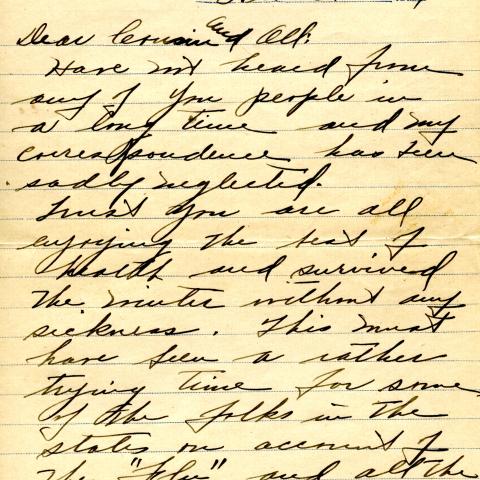 Dear Cousin and All:
Have not heard from
any of you people in
a long time and my
correspondence has been
sadly neglected.
Trust you are all
enjoying the best of
health and survived
the winter without any
sickness. This must
have been a rather
trying time for some
of the folks in the
states on account of
the "Flu" and all the